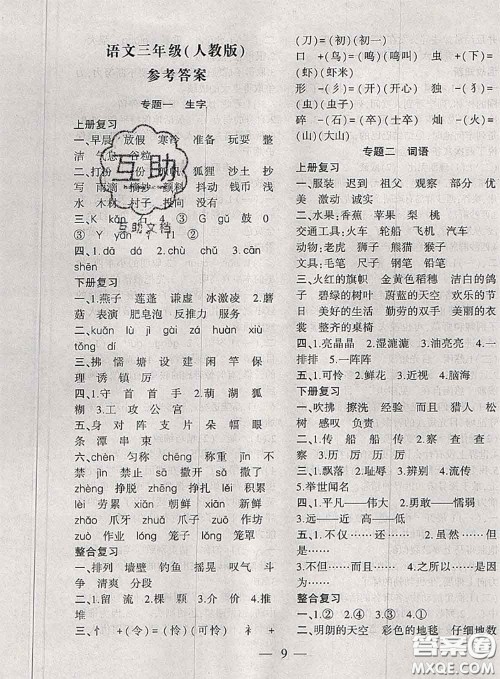 语文三年级(人教版)
参考答案
专题一 生字
上册复习
一、早晨 放假 寒冷 准备 玩耍 整
洁 气息 谷粒
二、打扮 狐狸 沙土 抄
写 雨滴 摘抄 颜料 抖动 钱币 浅
水 木材 村子
三、K kǎn 石 4 ③ G
③ Y
四、1.dǎ dǎ 2.chù chǔ 3.cān
shēn
下册复习
一、1.燕子 莲蓬 谦虚 冰激凌 2.蘑
菇 表演 肥皂泡 反推力 服务
二、kuān lù jì zāi huàn xiù
tǒng dǐ
三、拂 懦 塘 设 建 闲 竿 保
理 诱 镇 厉
四、1.守 首 首 手 2.葫 湖 狐
糊 3.工 攻 公 宫
五、身 对 阵 支 片 朵 幅 眼
条 潭 串 束
六、chèn 匀称 chēng 称赞 jìn 禁止
jīn 不禁 sǎ 撒种 sā 撒开 zhēng 挣扎
zhèng 挣脱 zhé 折断 zhē 折腾 jī 积累
lèi 劳累 xīng 新兴 xìng 高兴 xiān 新鲜
xiǎn 鲜见 zhǎo 爪牙 zhuǎ 爪子 zuō 作坊
zuò 作业 lóng 笼子 lǒng 笼罩
整合复习
一、排列 墙壁 钓鱼 摇晃 叹气 斗
争 清爽 分段
二、1.困 2.粿 颗 3.介 价 4.推
堆
三、忄+(令)=(怜)(可怜) 礻+
(刀)=(初)(初中)
口 +(鸟)=(鸣)(鸣叫) 虫 +(下)=
(虾)(虾米)
形 -(彡)=(开)(开心) 蛋 -(疋)=
(虫)(虫子)
碎 -(石)=(卒)(士卒) 灿 -(火)=
(山)(大山)
专题二 词语
上册复习
一、服装 迟到 祖父 观察 部分 优
美 激动 诚实
二、水果:香蕉 苹果 梨 桃子
交通工具:火车 轮船 飞机 汽车
动物:老虎 狮子 熊猫 猴子
文具:毛笔 尺子 钢笔 铅笔
三、火红的旗帜 金黄色稻穗 洁白的鸽子
碧绿的树叶 蔚蓝的天空 欢乐的节日
美好的生活 勤劳的双手 美丽的衣裳
整齐的桌椅
四、1.亮晶晶 2.湿漉漉 3.油亮亮 4.一
排排 5.一阵阵
五、1.可怜 2.鲜花 3.近视 4.脑海
下册复习
一、吹拂 擦洗 经验 而且 猎人 树
感叹 负责
二、1.传 船 船 传 2.察 查 查
察 3.历 厉 厉 历
三、1.飘落 2.耻辱 3.辨别 4.流传
5.举世闻名
四、1.平凡——伟大 2.勇敢——懦弱
3.远——近 4.高——低
五、1.不仅…… 还…… 2.虽然……但
是……
3.不但……而且…… 4.之所以……是
因为……
整合复习
一、②③④① 2.④①
二、明朗的天空 彩色的地毯 仔细地数
9
互助
互助文档